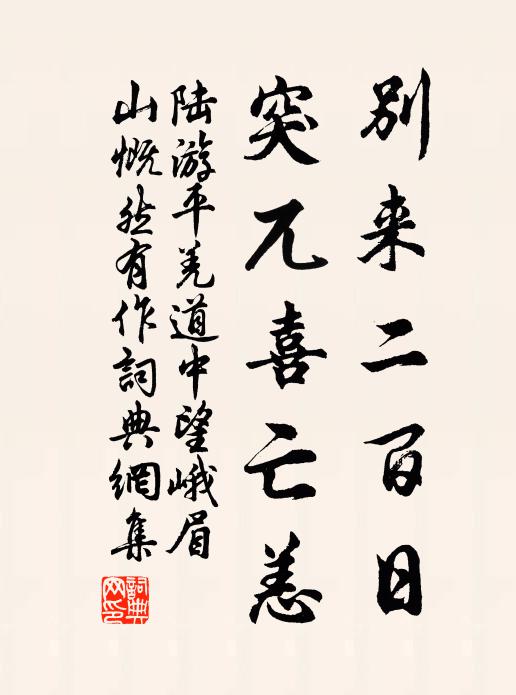 別来二百日
突兀喜亡恙
陆游平羌道中望峨眉
山慨然有作詞典網集
詞典网印